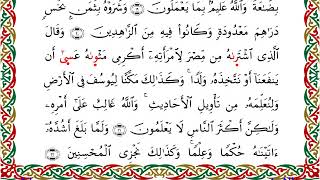 بِضَٰعَةً وَٱللَّهُ عَلِيمٌۢ بِمَا يَعْمَلُونَ ١٩ وَشَرَوْهُ بِثَمَنٍۭ بَخْسٍ
دَرَٰهِمَ مَعْدُودَةٍ وَكَانُوا۟ فِيهِ مِنَ ٱلزَّٰهِدِينَ ٢٠ وَقَالَ
ٱلَّذِى ٱشْتَرَىٰهُ مِن مِّصْرَ لِٱمْرَأَتِهِۦٓ أَكْرِمِى مَثْوَىٰهُ عَسَىٰٓ أَن
يَنفَعَنَآ أَوْ نَتَّخِذَهُۥ وَلَدًا ۚ وَكَذَٰلِكَ مَكَّنَّا لِيُوسُفَ فِى ٱلْأَرْضِ
وَلِنُعَلِّمَهُۥ مِن تَأْوِيلِ ٱلْأَحَادِيثِ ۚ وَٱللَّهُ غَالِبٌ عَلَىٰٓ أَمْرِهِۦ
وَلَٰكِنَّ أَكْثَرَ ٱلنَّاسِ لَا يَعْلَمُونَ ٢١ وَلَمَّا بَلَغَ أَشُدَّهُۥٓ
ءَاتَيْنَٰهُ حُكْمًا وَعِلْمًا ۚ وَكَذَٰلِكَ نَجْزِى ٱلْمُحْسِنِينَ ٢٢